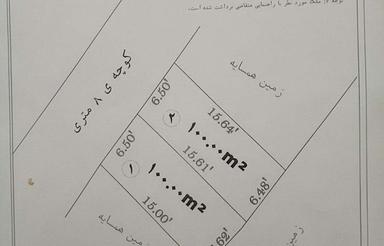 توجه ۲: ملک مورد نظر با راهنمایی متقاضی برداشت شده است.
کوچه ی ۸ متری
زمین همسایه
6.50'
15.64'
۲
۱۰۰.۰۰m²
6.50'
15.61'
6.48'
۱
۱۰۰.۰۰m²
15.00'
زمین همسایه